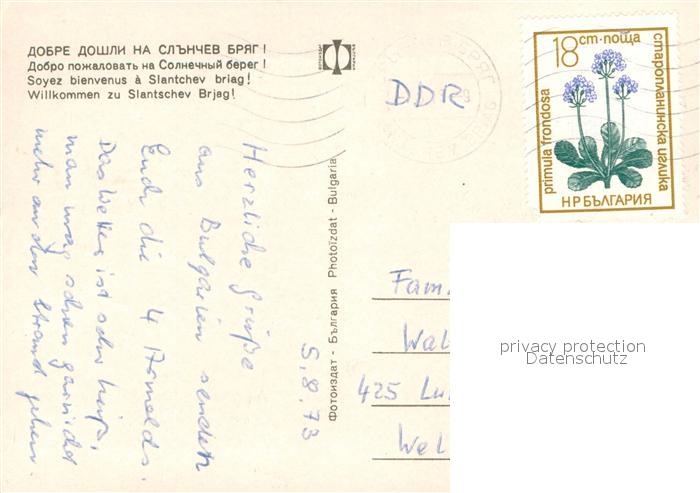 ДОБРЕ ДОШЛИ НА СЛЪНЧЕВ БРЯГ!
Добро пожаловать на Солнечный берег!
Soyez bienvenus à Slantchev briag!
Willkommen zu Slantschev Brjag!
DDR
18 ст·поща
primula frondosa
старопланинска иглика
НР БЪЛГАРИЯ
5.8.73
Herzliche Grüße
aus Bulgarien senden
Euch die 4
Das Wetter ist sehr heiß,
man mag schon gar nicht
mehr an den Strand gehen.
Фотоиздат - България Photoizdat - Bulgaria
Fam.
Wal
425 Lu
Wel
privacy protection
Datenschutz